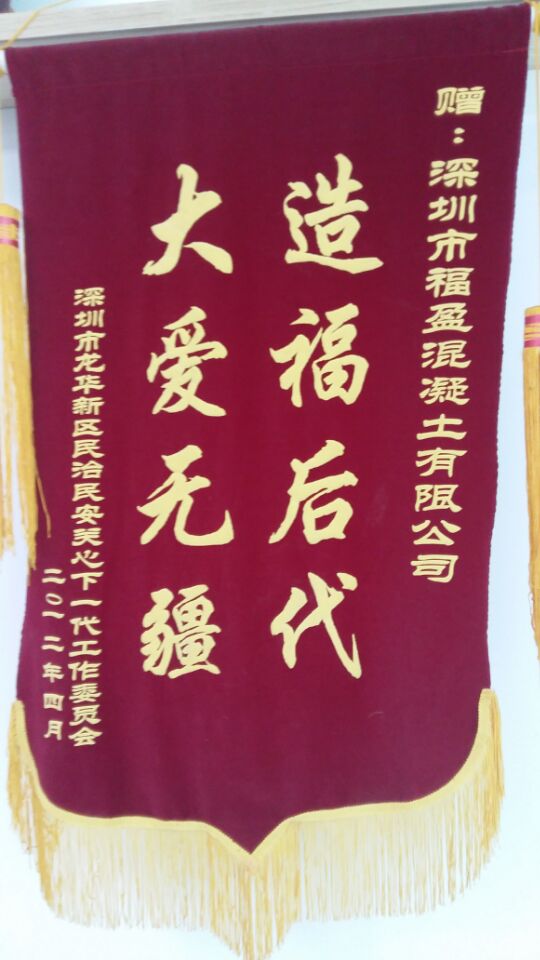 赠：深圳市福盈混凝土有限公司
造福后代
大爱无疆
深圳市龙华新区民治民安关心下一代工作委员会
二〇一二年四月